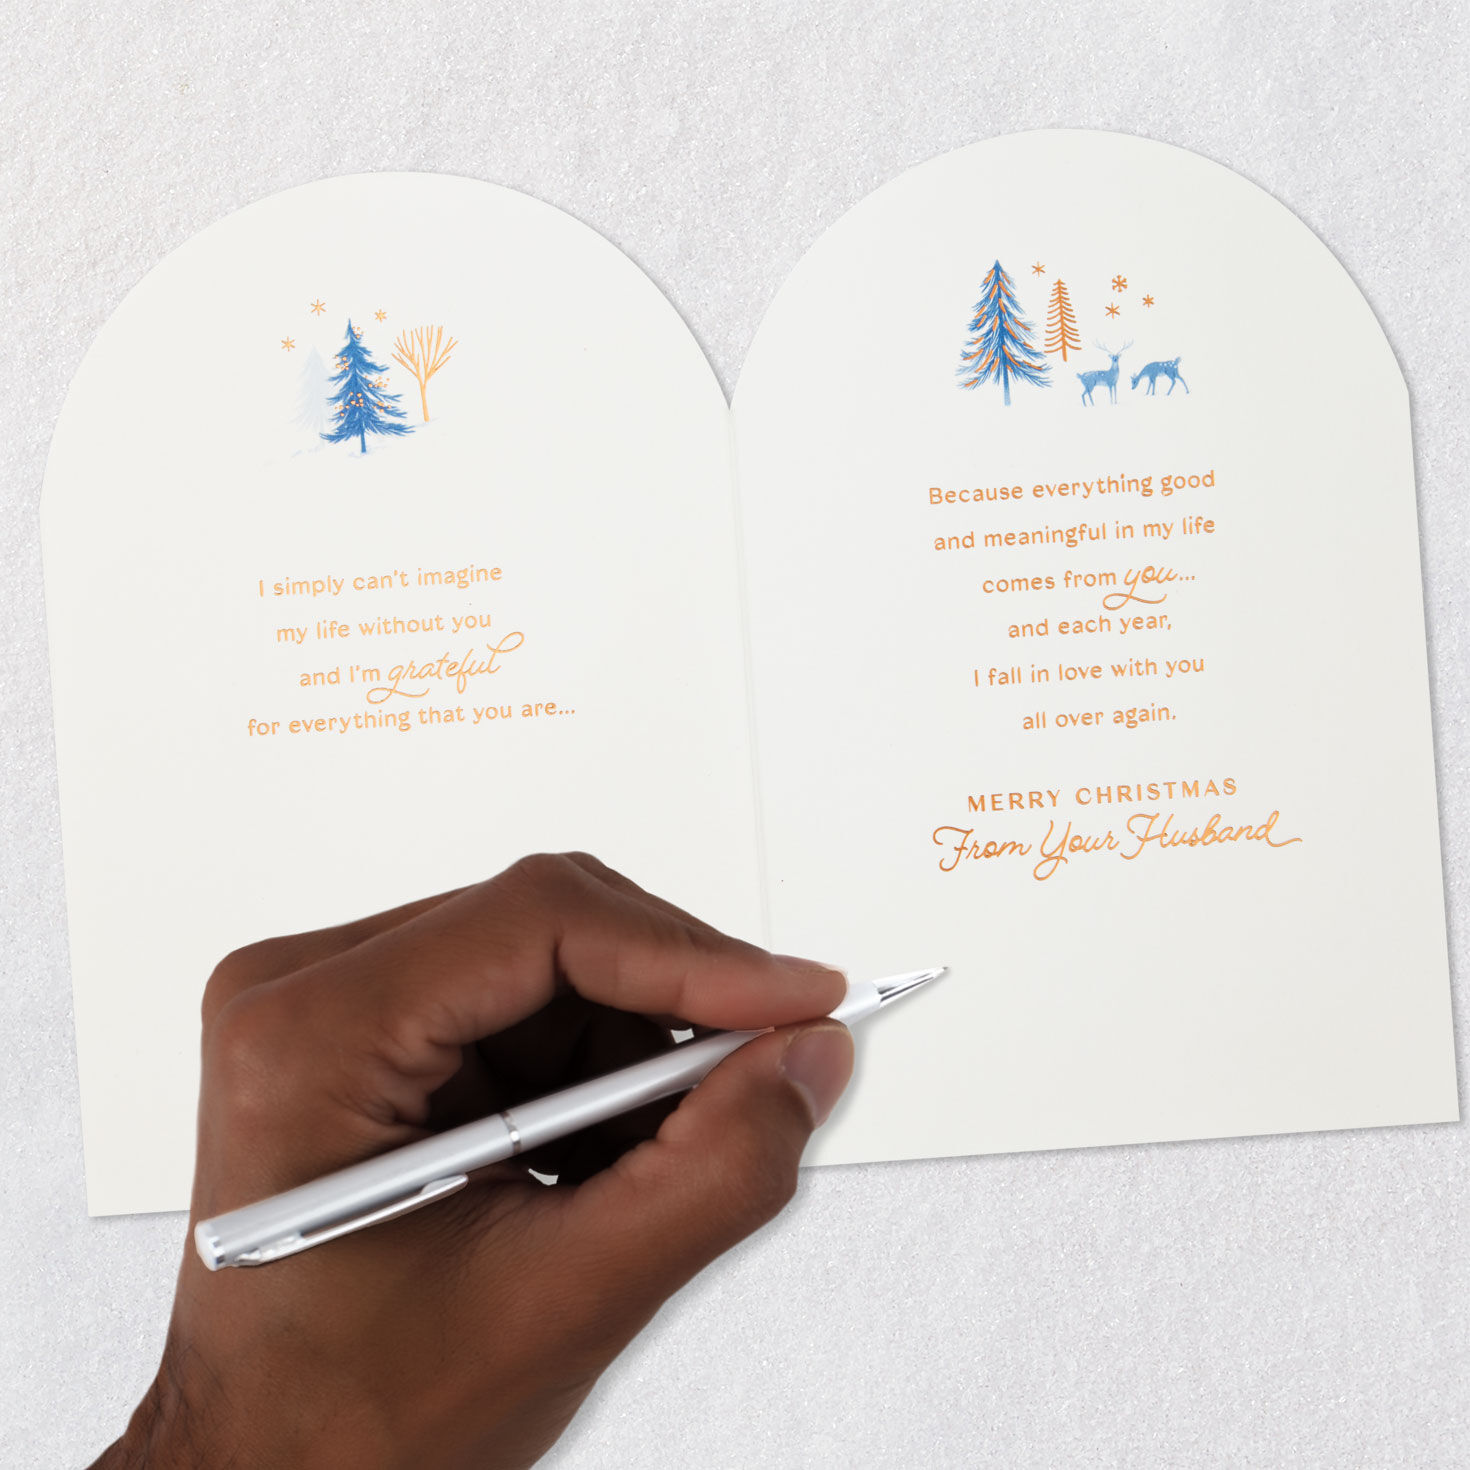 I simply can't imagine
my life without you
and I'm grateful
for everything that you are...
Because everything good
and meaningful in my life
comes from you...
and each year,
I fall in love with you
all over again.
MERRY CHRISTMAS
From Your Husband